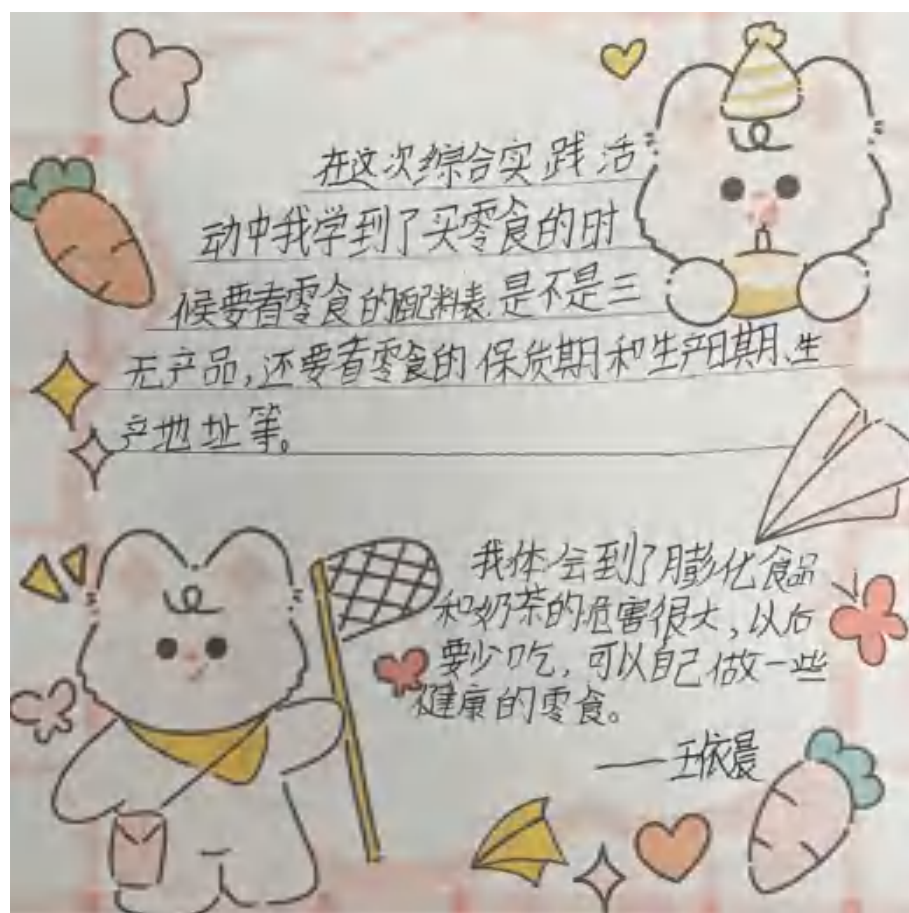 在这次综合实践活
动中我学到了买零食的时
候要看零食的配料表是不是三
无产品,还要看零食的保质期和生产日期、生
产地址等。
我体会到了膨化食品
和奶茶的危害很大,以后
要少吃,可以自己做一些
健康的零食。
——王依晨